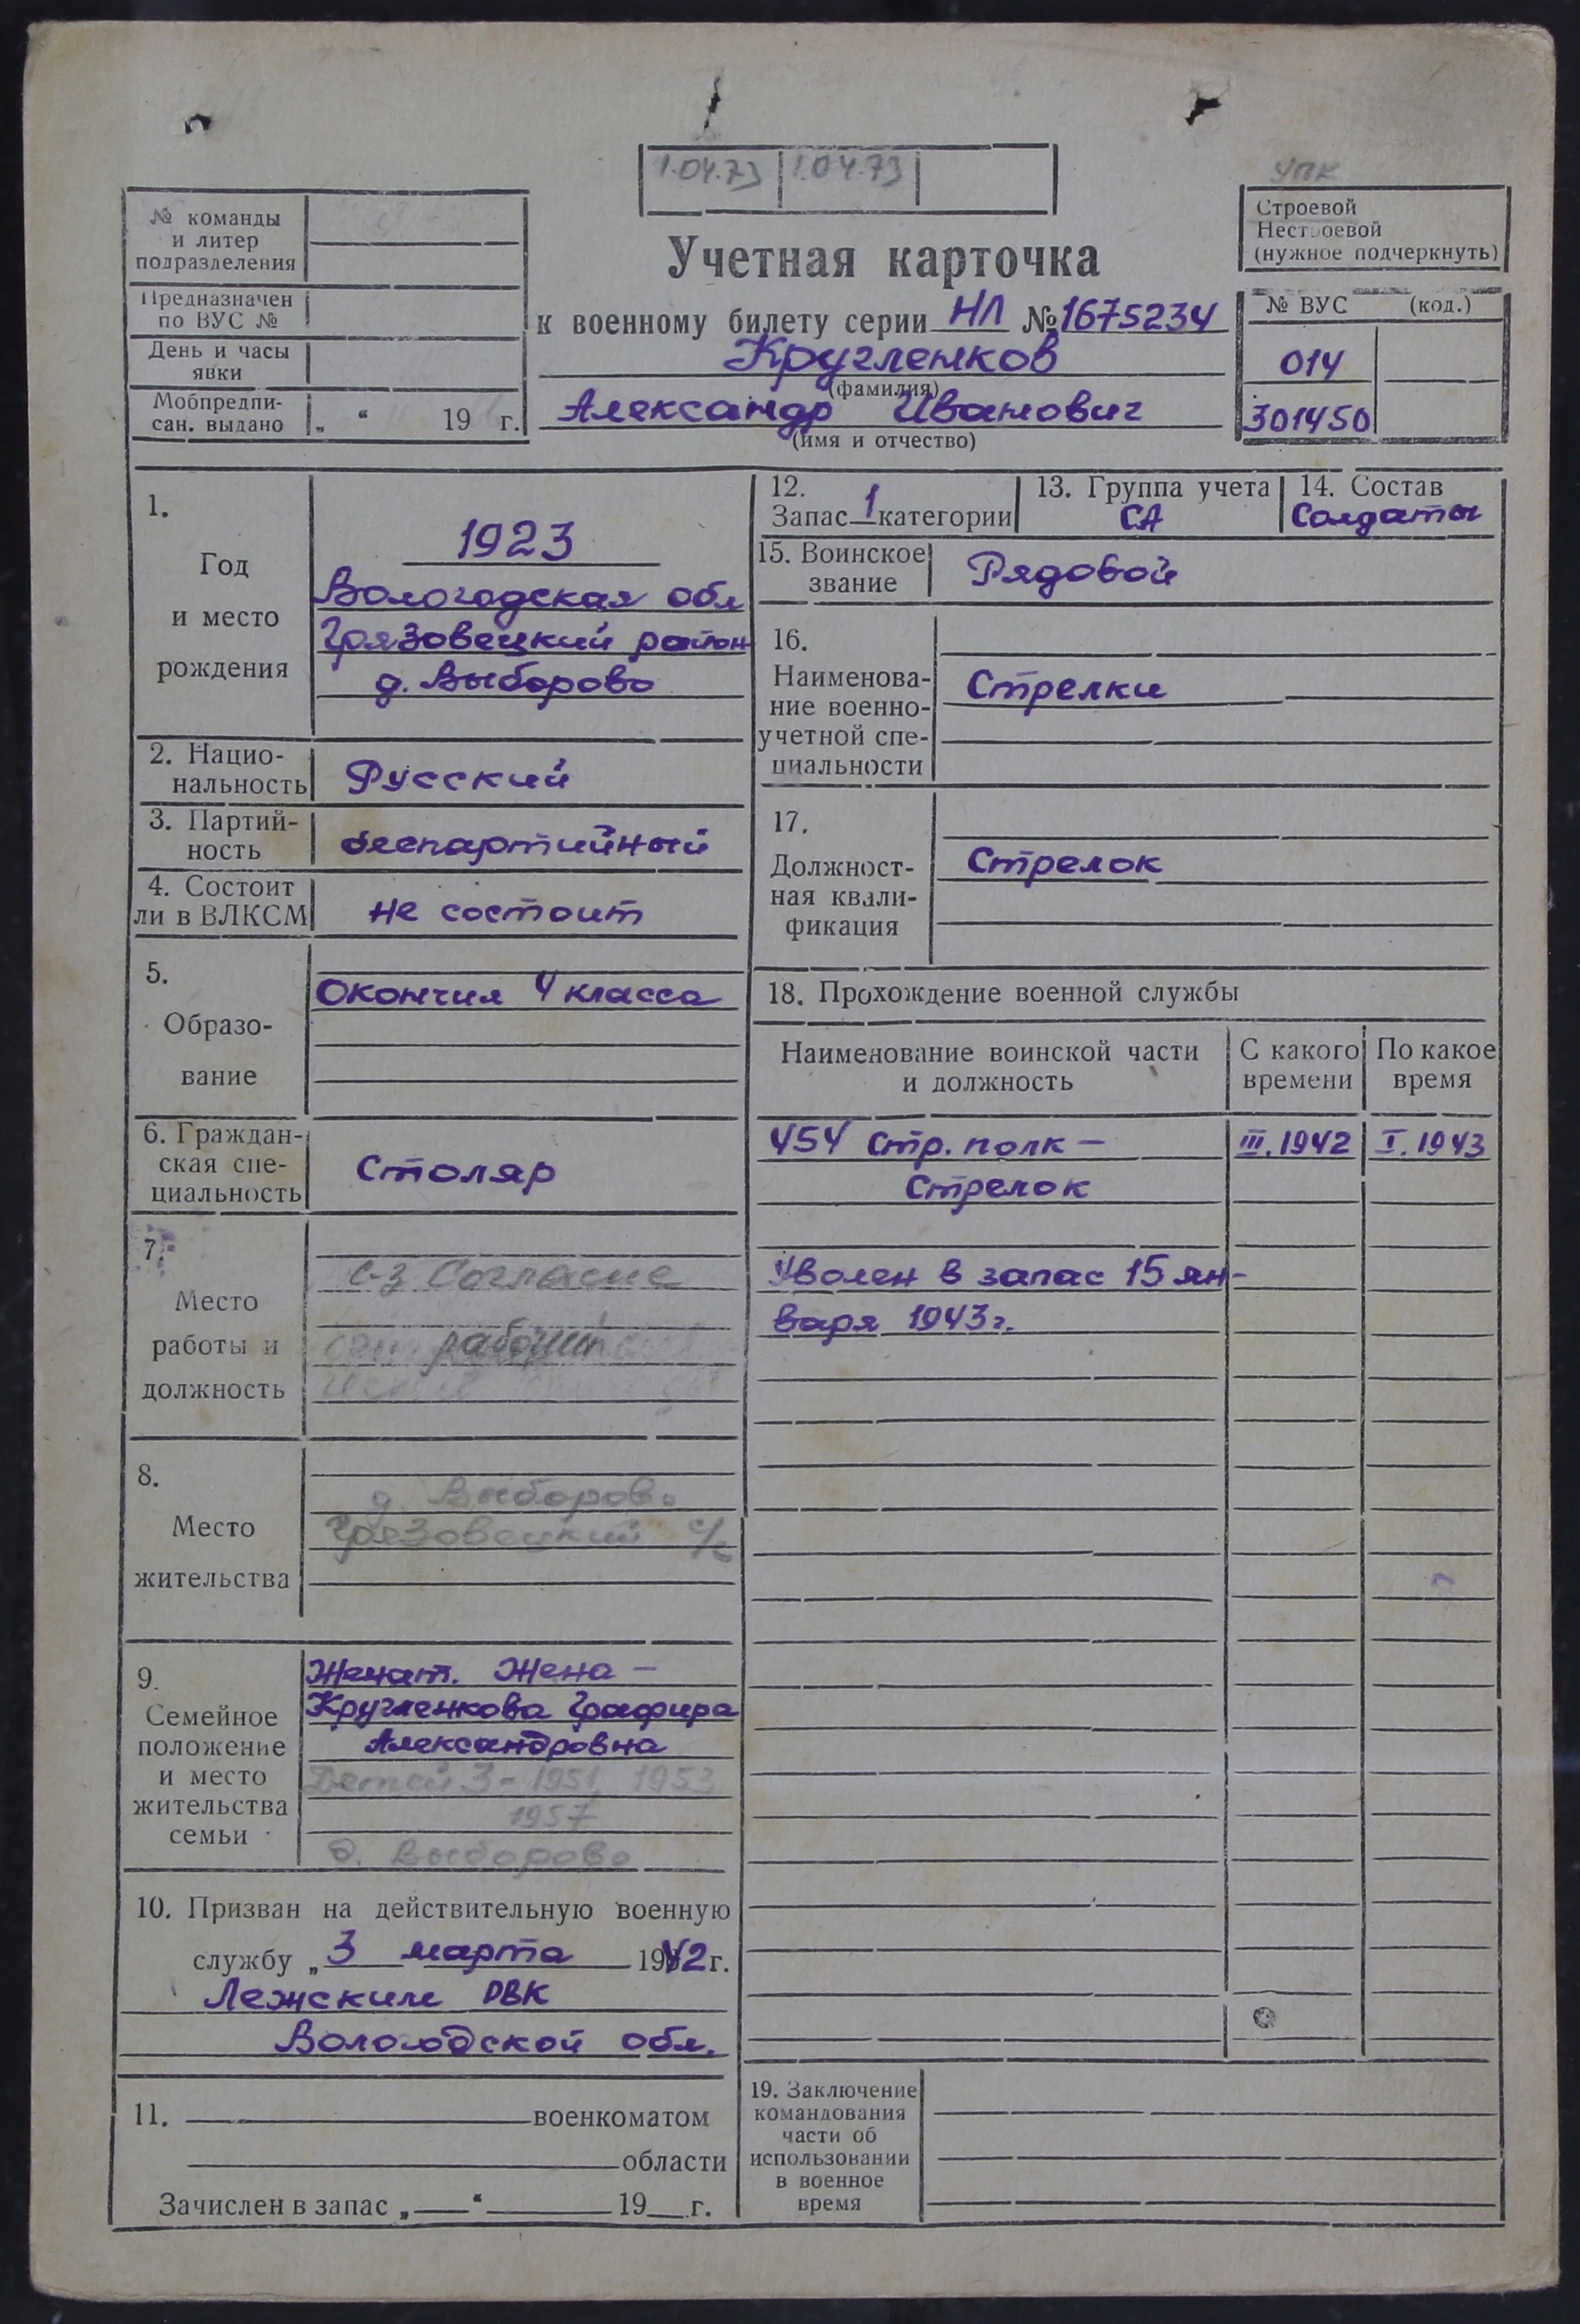 1.04.73 1.04.73
УПК
№ команды
и литер
подразделения
Предназначен
по ВУС №
День и часы
явки
Мобпредпи-
сан. выдано „ “ 19 г.
Учетная карточка
к военному билету серии НЛ № 1675234
Кругленков
(фамилия)
Александр Иванович
(имя и отчество)
Строевой
Нестроевой
(нужное подчеркнуть)
№ ВУС (код.)
014
301450
1.
Год
и место
рождения
1923
Вологодская обл
Грязовецкий район
д. Выборово
2. Нацио-
нальность Русский
3. Партий-
ность беспартийный
4. Состоит
ли в ВЛКСМ не состоит
5.
Образо-
вание
Окончил 4 класса
6. Граждан-
ская спе-
циальность
Столяр
7.
Место
работы и
должность
с-з Согласие
рабочий
8.
Место
жительства
д. Выборово
Грязовецкий с/с
9.
Семейное
положение
и место
жительства
семьи
Женат. Жена —
Кругленкова Графира
Александровна
Детей 3 - 1951, 1953
1957
д. Выборово
10. Призван на действительную военную
службу „ 3 марта 1942 г.
Лежским РВК
Вологодской обл.
11. военкоматом
области
Зачислен в запас „ “ 19 г.
12.
Запас 1 категории
13. Группа учета
СА
14. Состав
Солдаты
15. Воинское
звание Рядовой
16.
Наименова-
ние военно-
учетной спе-
циальности
Стрелки
17.
Должност-
ная квали-
фикация
Стрелок
18. Прохождение военной службы
Наименование воинской части
и должность
С какого
времени
По какое
время
454 Стр. полк — III.1942 I.1943
Стрелок
Уволен в запас 15 ян-
варя 1943г.
19. Заключение
командования
части об
использовании
в военное
время